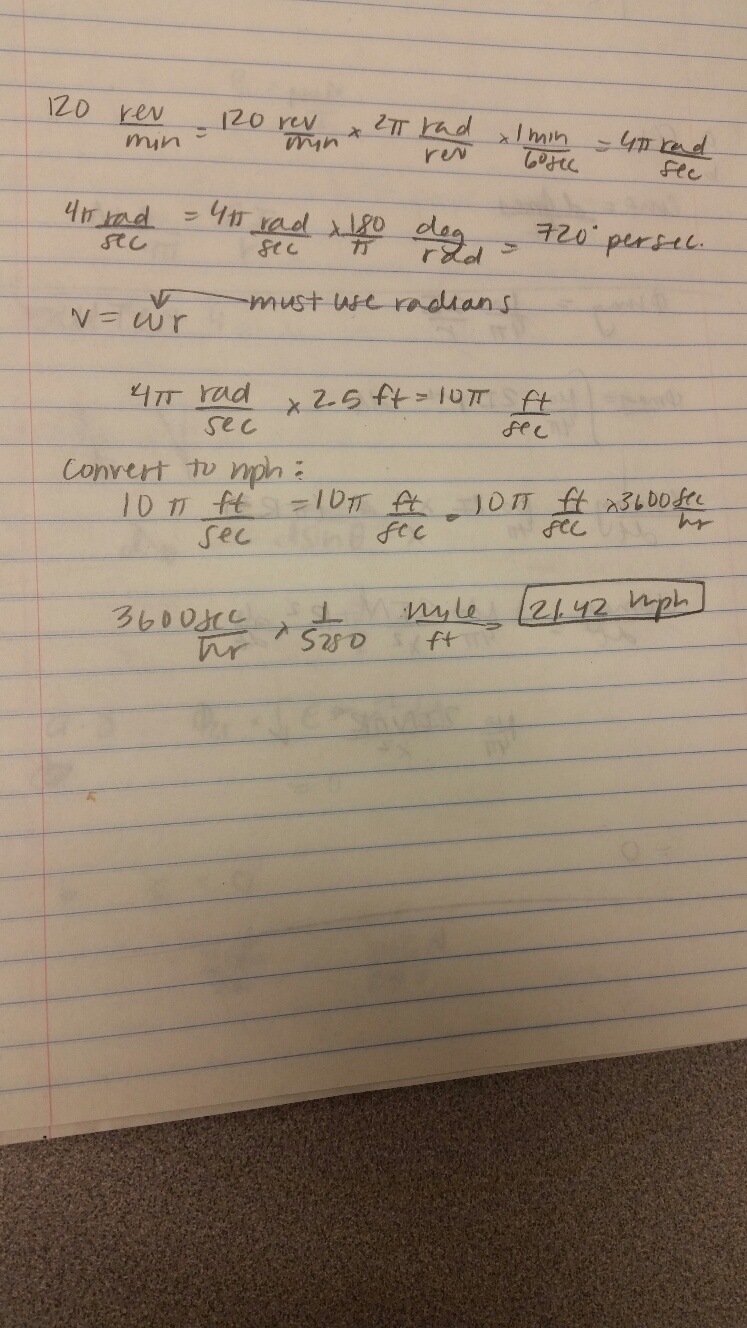 120 rev/min = 120 rev/min × 2π rad/rev × 1 min/60 sec = 4π rad/sec
4π rad/sec = 4π rad/sec × 180/π deg/rad = 720° per sec.
v = ωr must use radians
4π rad/sec × 2.5 ft = 10π ft/sec
Convert to mph:
10π ft/sec = 10π ft/sec = 10π ft/sec × 3600 sec/hr
3600 sec/hr × 1/5280 mile/ft = 21.42 mph